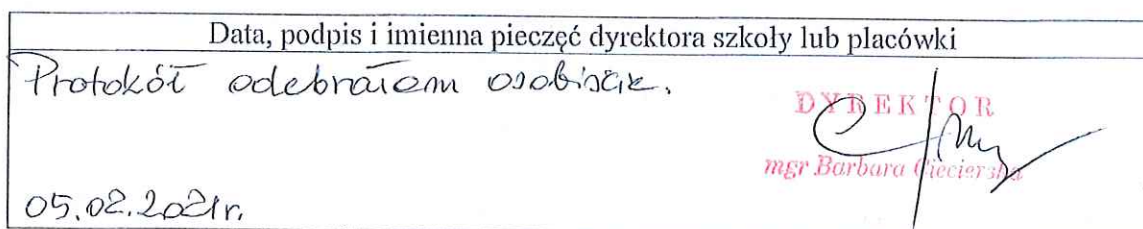 Data, podpis i imienna pieczęć dyrektora szkoły lub placówki
Protokół odebrałam osobiście.
DYREKTOR
mgr Barbara Ciecierska
05.02.2021r.